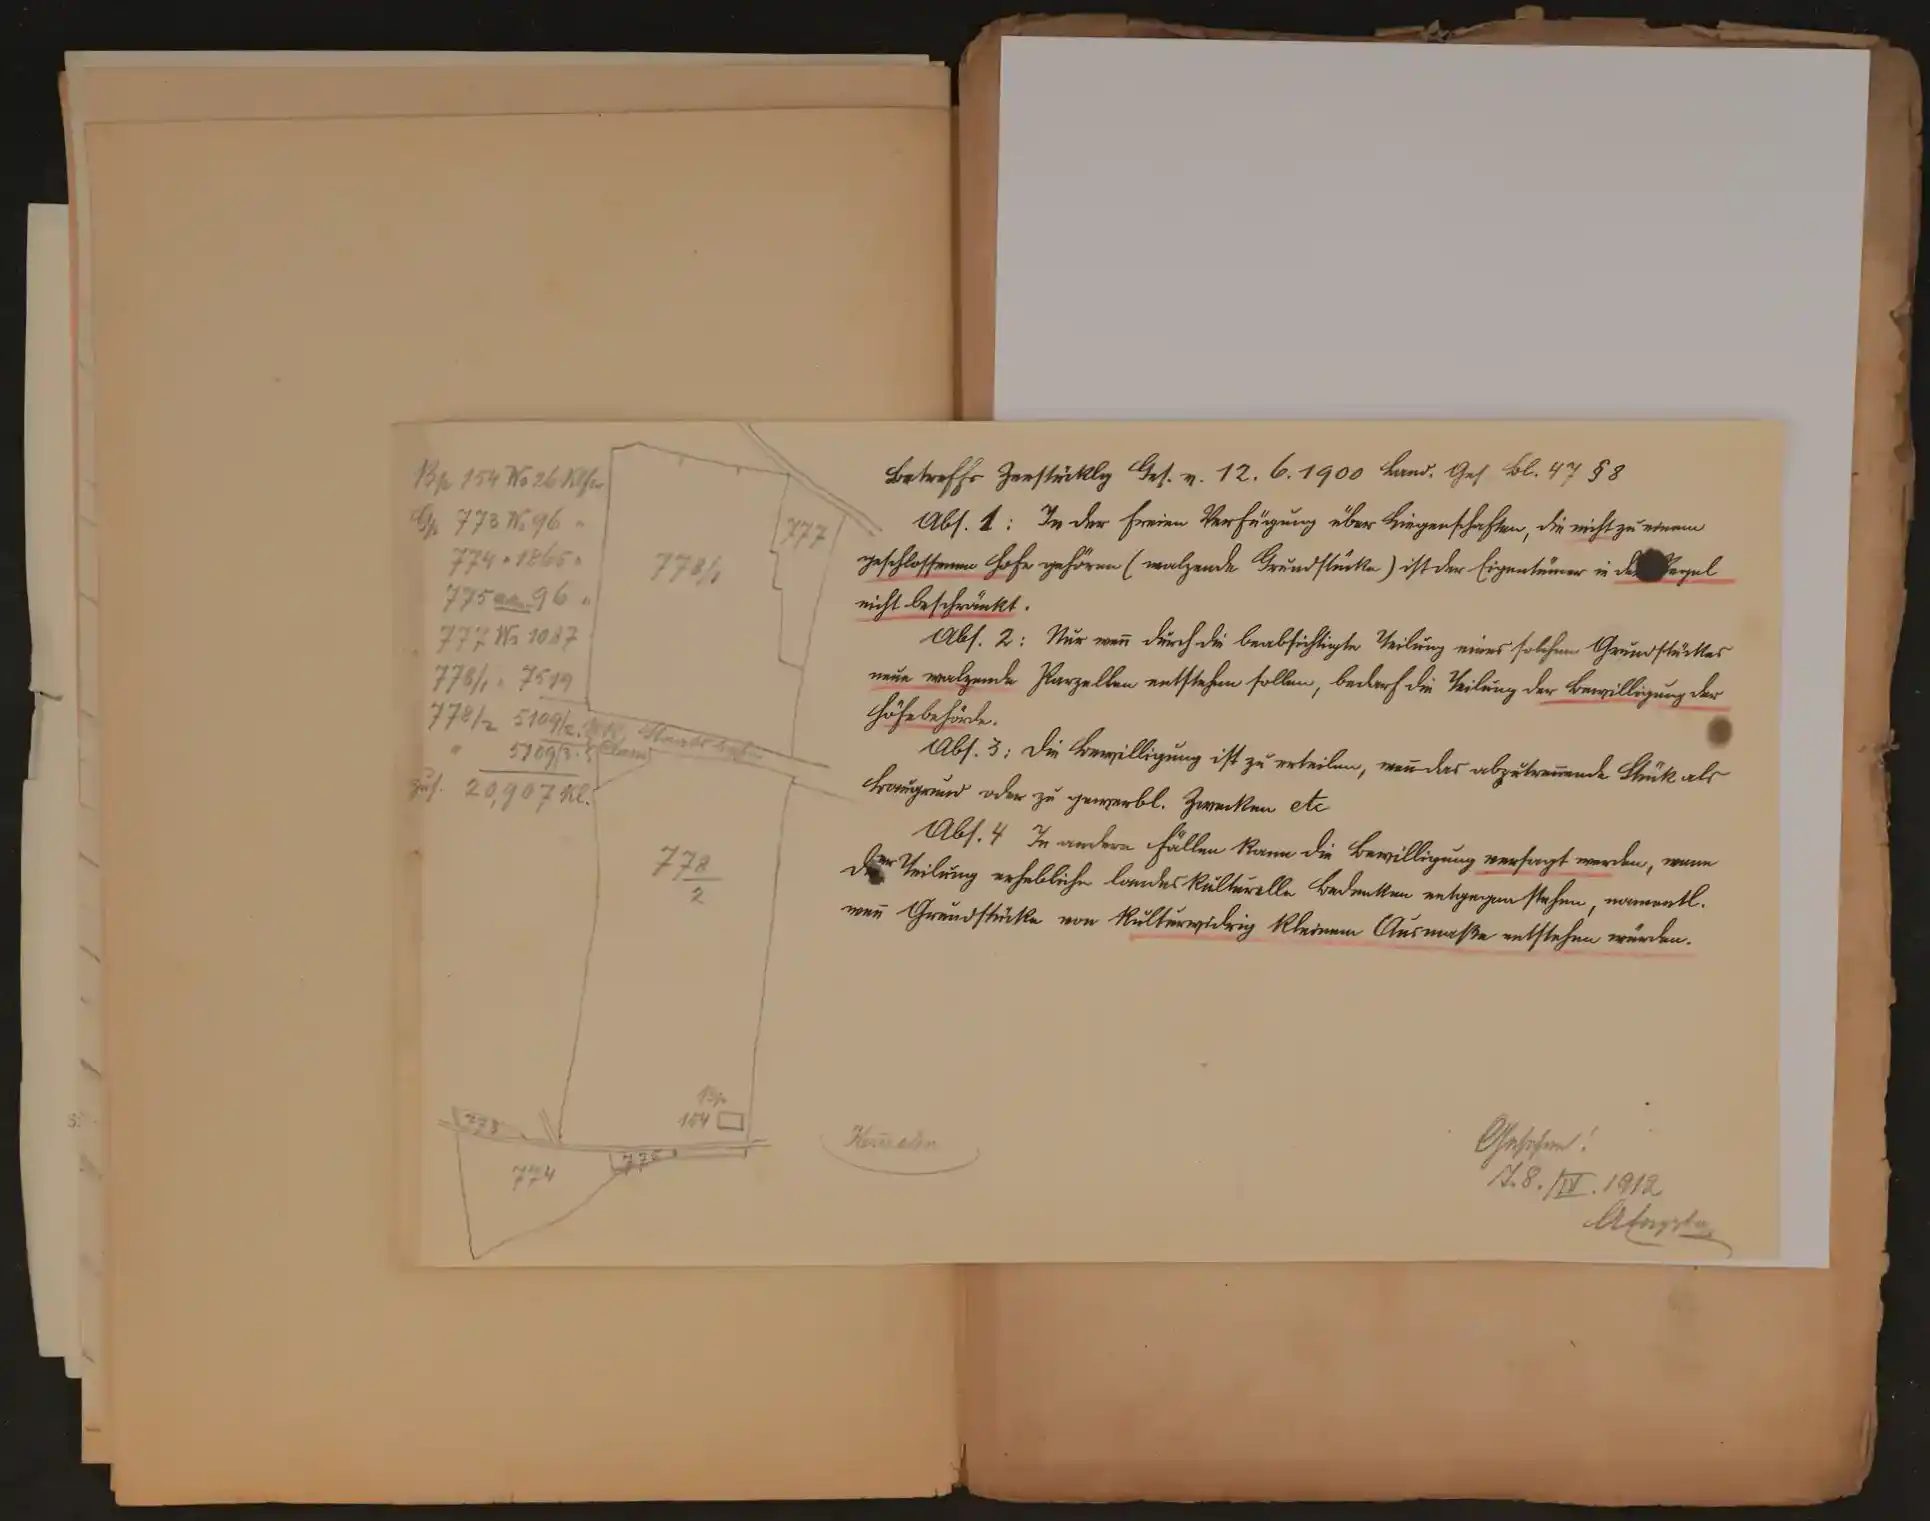 Bp 154 No 26 Klftr
Gp 773 No 96 "
774 " 1865 "
775 96 "
777 No 1087
778/1 " 7519
778/2 5109/2
" 5109/3
zus. 20,907 Kl.
Staatsbahn
778/1
777
778
2
Bp
154
773
774
775
Betreffs Zerstücklg Ges. v. 12. 6. 1900 Land. Ges Bl. 47 § 8
Abs. 1: In der freien Verfügung über Liegenschaften, die nicht zu einem
geschlossenen Hofe gehören (walzende Grundstücke) ist der Eigentümer in der Regel
nicht beschränkt.
Abs. 2: Nur weñ durch die beabsichtigte Teilung eines solchen Grundstückes
neue walzende Parzellen entstehen sollen, bedarf die Teilung der Bewilligung der
Höfebehörde.
Abs. 3: Die Bewilligung ist zu erteilen, weñ das abzutrennende Stück als
Baugrund oder zu gewerbl. Zwecken etc
Abs. 4 In andern Fällen kann die Bewilligung versagt werden, wenn
der Teilung erhebliche landeskulturelle Bedenken entgegen stehen, namentl.
weñ Grundstücke von kulturwidrig kleinem Ausmaße entstehen würden.
Gesehen!
J. 8./IV. 1912